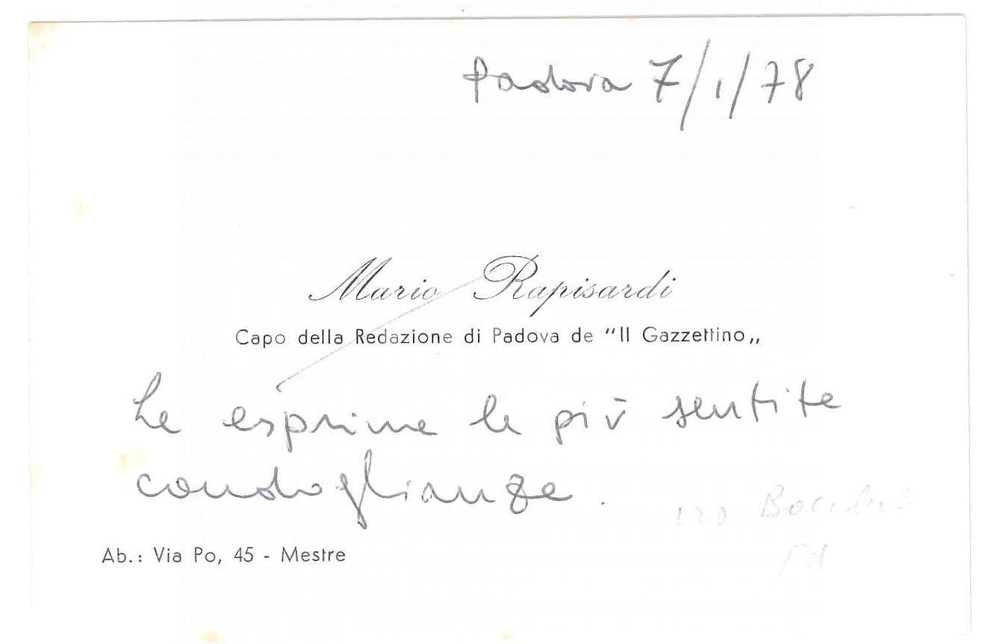 Padova 7/1/78
Mario Rapisardi
Capo della Redazione di Padova de "Il Gazzettino„
Le esprime le più sentite
condoglianze.
Ab.: Via Po, 45 - Mestre